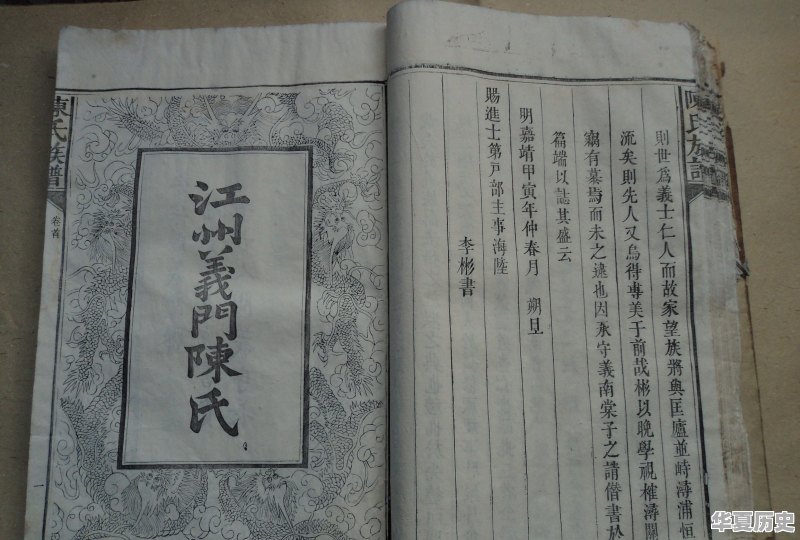 陳氏族譜
則世爲義士仁人而故家望族將與匡廬並峙潯浦恒
流矣則先人又烏得專美于前哉彬以晚學視榷潯關
竊有慕焉而未之遠也因永守義南棠子之請僭書於
篇端以誌其盛云
明嘉靖甲寅年仲春月 朔旦
賜進士第戸部主事海陸
李彬書
江州義門陳氏
陳氏族譜
卷首
一
华夏历史